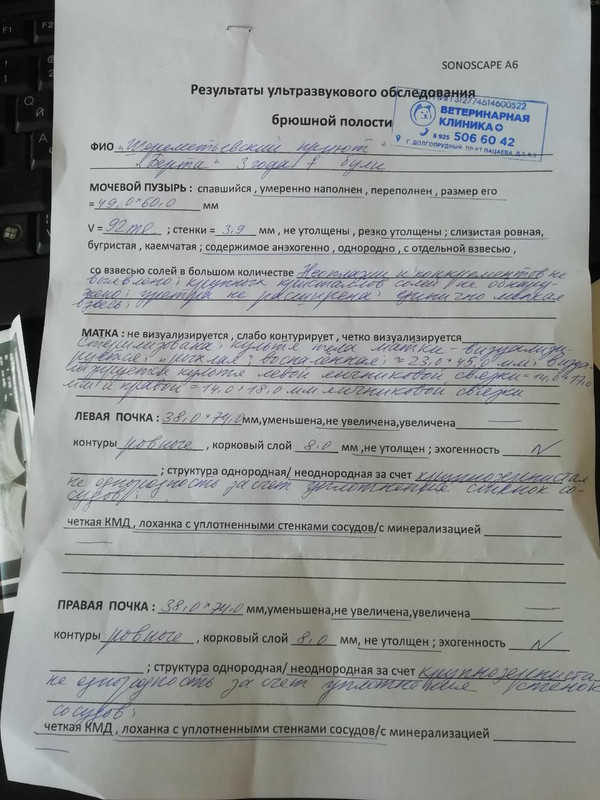 SONOSCAPE A6
Результаты ультразвукового обследования
брюшной полости
ВЕТЕРИНАРНАЯ
КЛИНИКА
8 925 506 60 42
Г. ДОЛГОПРУДНЫЙ, ПР-КТ ПАЦАЕВА, Д.
ФИО „Шереметьевский приют“
„Берта“ 3 года
МОЧЕВОЙ ПУЗЫРЬ : спавшийся , умеренно наполнен , переполнен , размер его
=49,0×60,0 мм
V = 92 ml ; стенки = 3,9 мм , не утолщены , резко утолщены ; слизистая ровная,
бугристая , каемчатая ; содержимое анэхогенно , однородно , с отдельной взвесью ,
со взвесью солей в большом количестве Неоплазии и конкрементов не
выявлено; крупных кристаллов солей не обнару-
жено; уретра не расширена; единично мелкая
взвесь;
МАТКА : не визуализируется , слабо контурирует , четко визуализируется
Стерилизована; культя тела матки - визуализи-
руется; рыхлая; воспаленная; = 23,0 × 45,0 мм;
культя левой яичниковой связки = 14,0 × 17,0
мм и правой = 14,0 × 18,0 мм яичниковой связки
ЛЕВАЯ ПОЧКА : 38,0 × 74,0 мм,уменьшена,не увеличена,увеличена
контуры ровные , корковый слой 8,0 мм ,не утолщен ; эхогенность N
; структура однородная/ неоднородная за счет крупнозернистая
неоднородность за счет уплотнения стенок со-
судов;
четкая КМД , лоханка с уплотненными стенками сосудов/с минерализацией
ПРАВАЯ ПОЧКА : 38,0 × 74,0 мм,уменьшена,не увеличена,увеличена
контуры ровные , корковый слой 8,0 мм, не утолщен ; эхогенность N
; структура однородная/ неоднородная за счет крупнозерниста
неоднородность за счет уплотнения стенок
сосудов;
четкая КМД , лоханка с уплотненными стенками сосудов/с минерализацией